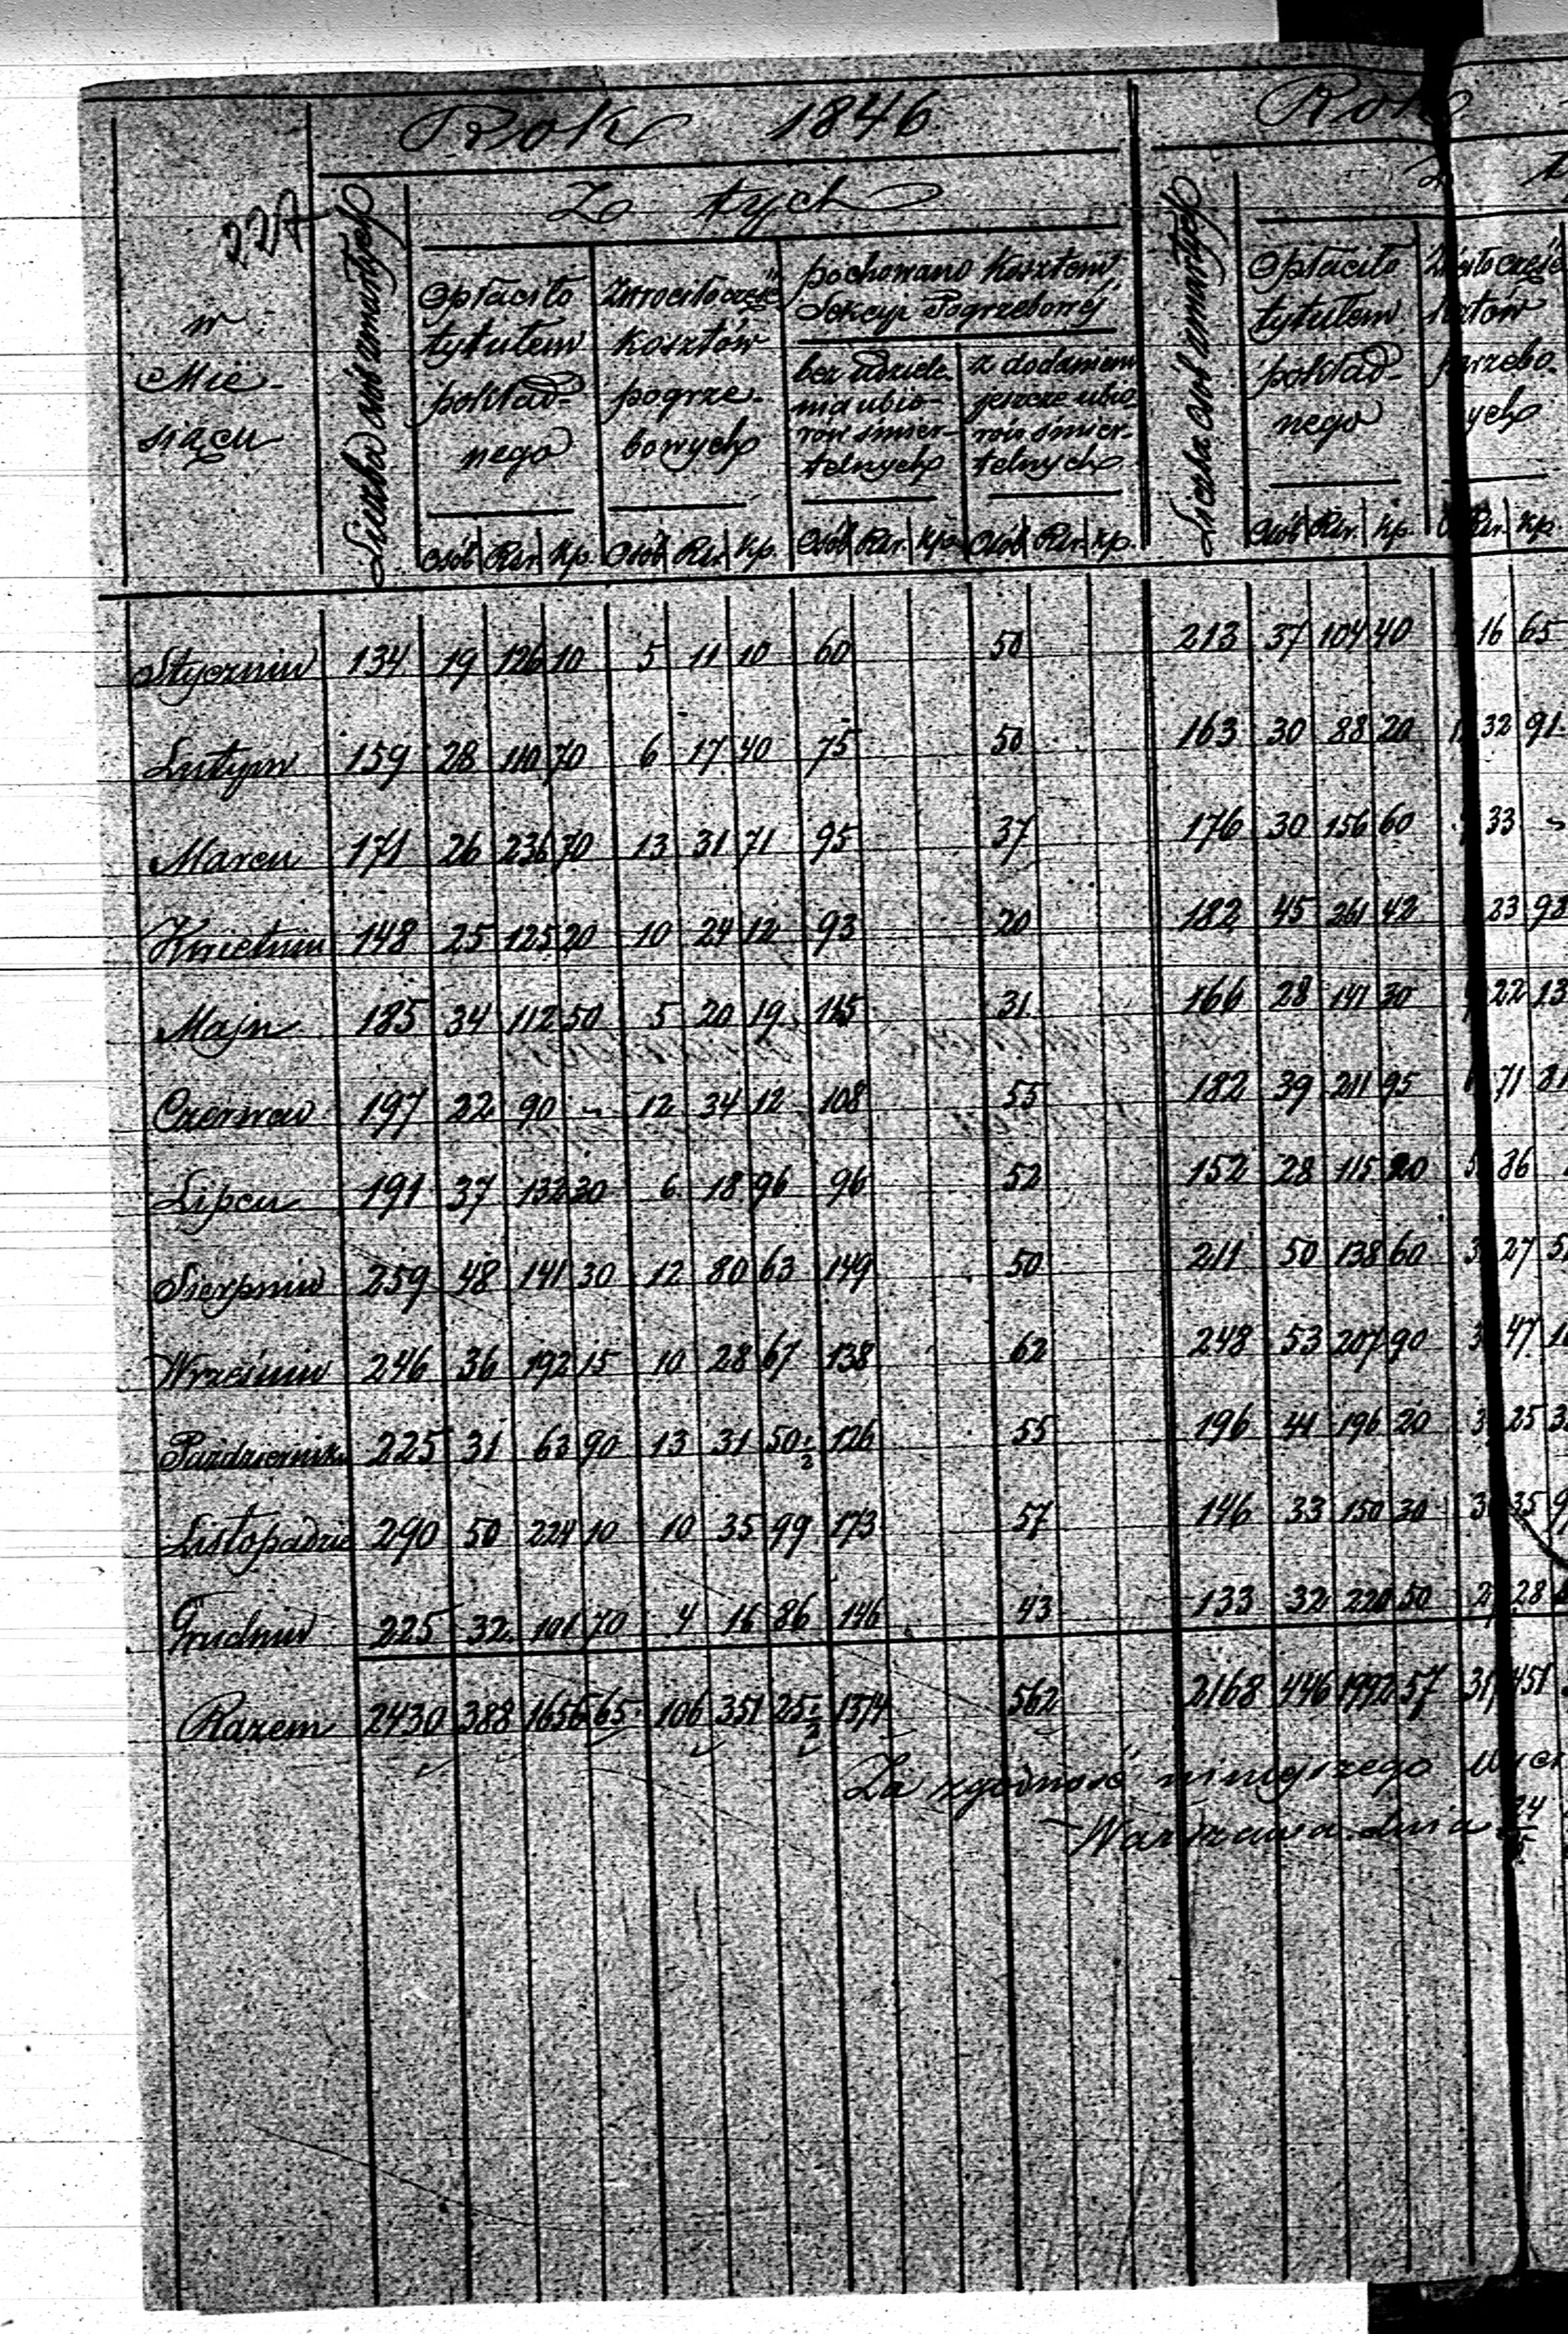 Rok 1846 Rok
227
Z tych
w Miesiącu
Liczba osób zmarłych
Opłaciło tytułem pokładnego
Zwróciło część kosztów pogrzebowych
pochowano kosztem Sekcyi Pogrzebowéj
bez udzielenia ubiorów śmiertelnych
z dodaniem jeszcze ubiorów śmiertelnych
Liczba osób zmarłych
Opłaciło tytułem pokładnego
Osób Rsr. kp. Osób Rsr. kp. Osób Rsr. kp. Osób Rsr. kp. Osób Rsr. kp. Rsr. kp.
Styczniu 134 19 126 10 5 11 10 60 50 213 37 104 40 16 65
Lutym 159 28 110 70 6 17 40 75 50 163 30 88 20 32 91
Marcu 171 26 236 70 13 31 71 95 37 176 30 156 60 33 -
Kwietniu 148 25 125 20 10 24 12 93 20 182 45 261 42 23 92
Maju 185 34 112 50 5 20 19 115 31 166 28 141 30 22 13
Czerwcu 197 22 90 - 12 34 12 108 55 182 39 211 95 71 81
Lipcu 191 37 132 30 6 18 96 96 52 152 28 115 20 36
Sierpniu 259 48 141 30 12 80 63 149 50 211 50 138 60 27
Wrześniu 246 36 192 15 10 28 67 138 62 248 53 207 90 47
Październiku 225 31 63 90 13 31 50½ 126 55 196 41 196 20 25
Listopadzie 290 50 224 10 10 35 99 173 57 146 33 150 30 35
Grudniu 225 32 101 70 4 16 86 146 43 133 32 220 50 28
Razem 2430 388 1656 65 106 351 25½ 1374 562 2168 446 1992 57 451
Za zgodność niniejszego
Warszawa dnia 24